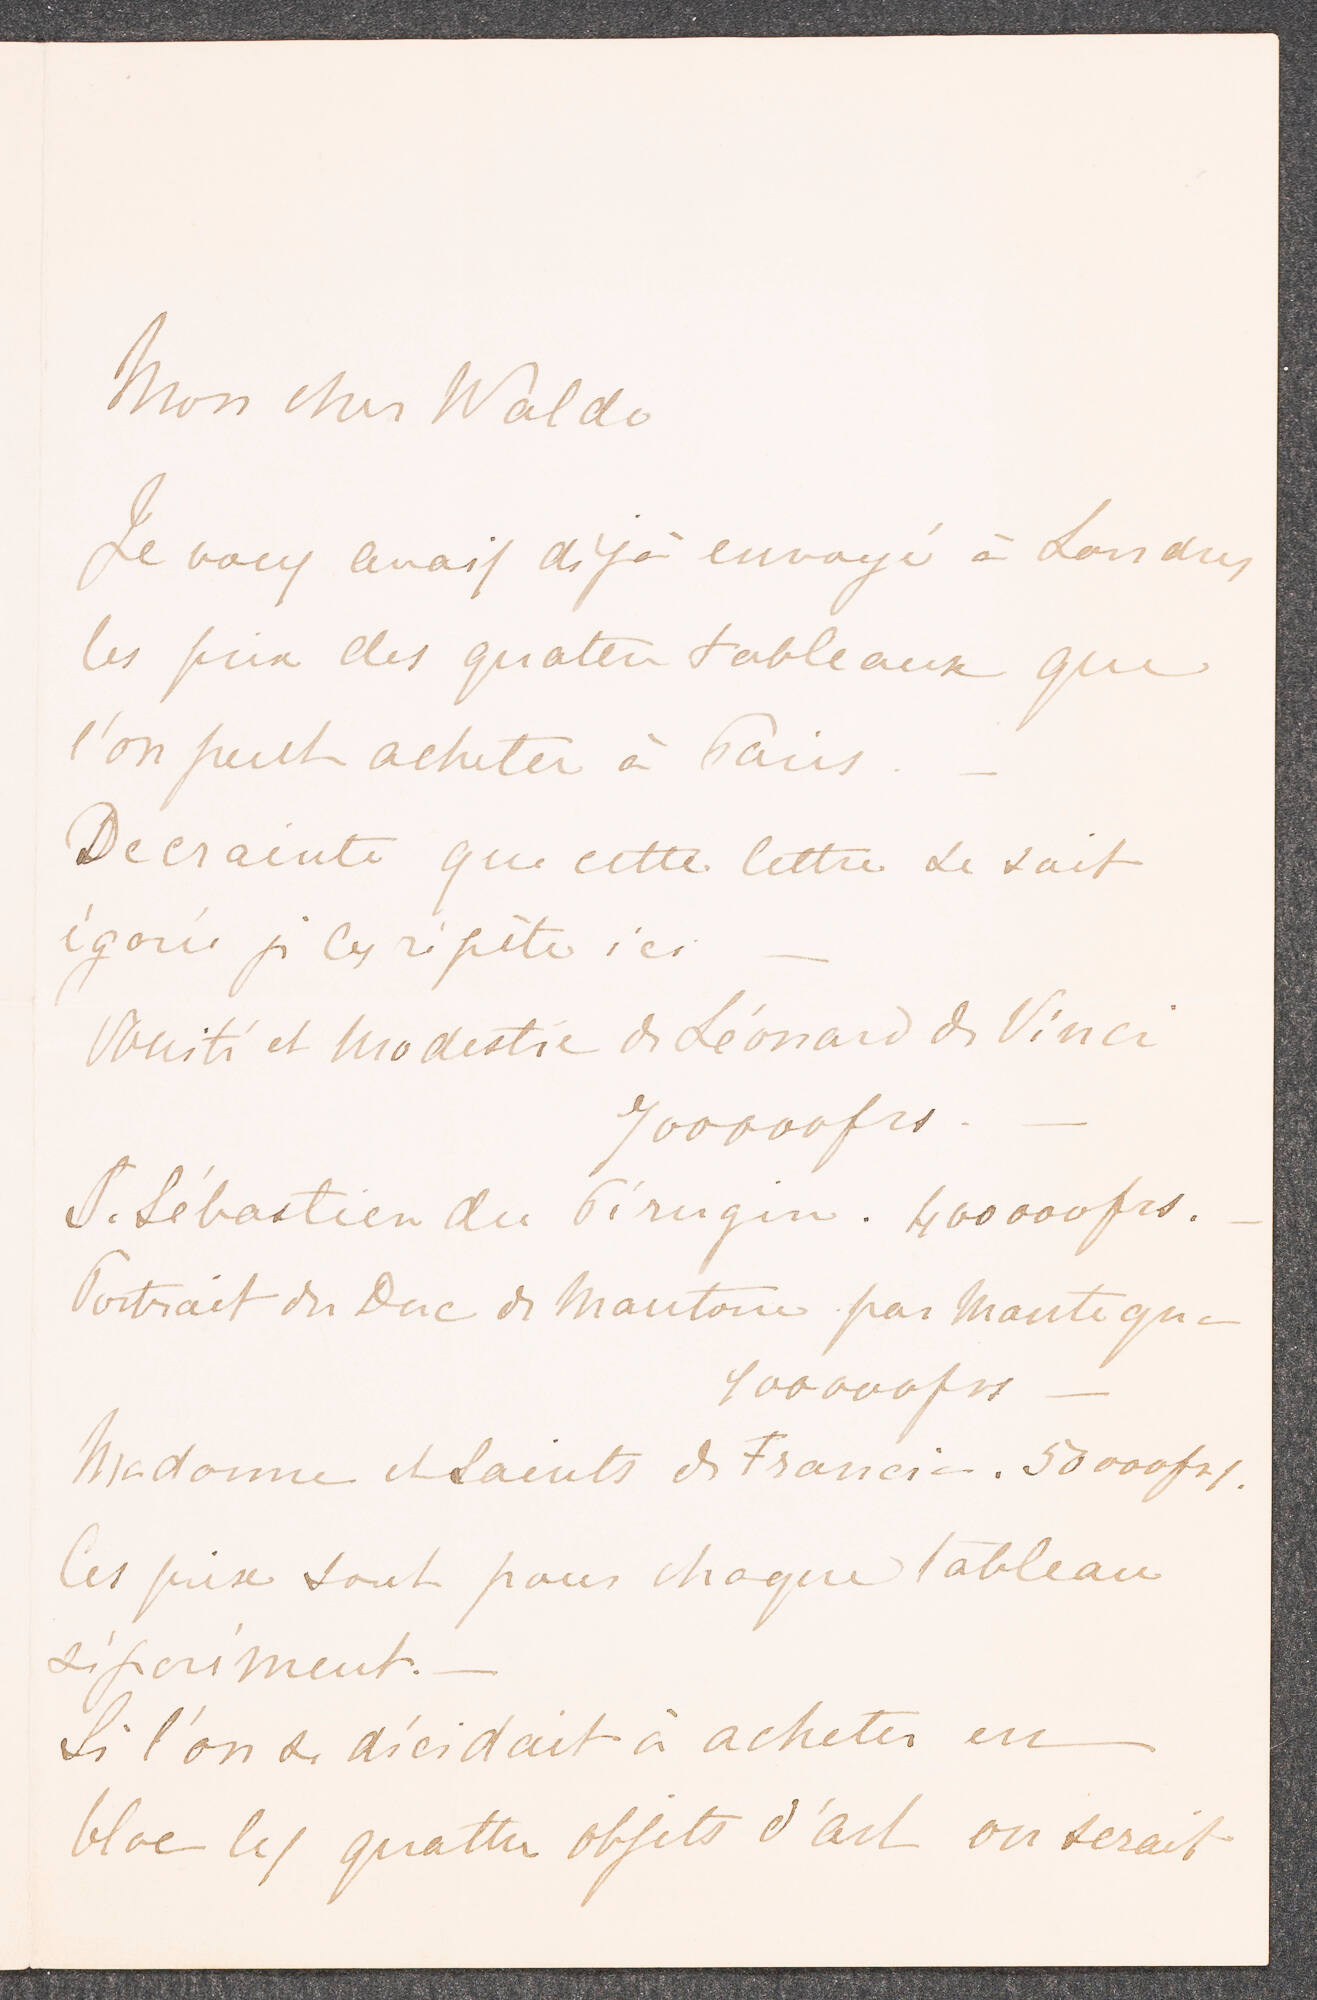 Mon cher Waldo
Je vous avais déjà envoyé à Londres
les prix des quatre tableaux que
l'on peut acheter à Paris. —
De crainte que cette lettre se soit
égarée je les répète ici —
Vanité et Modestie de Léonard de Vinci
700000frs. —
S. Sébastien du Pérugin. 400000frs. —
Portrait du Duc de Mantoue par Mantegna
400000frs —
Madonne et Saints de Francia. 50000frs.
Ces prix sont pour chaque tableau
séparément. —
Si l'on se décidait à acheter en
bloc les quattre objets d'art on serait